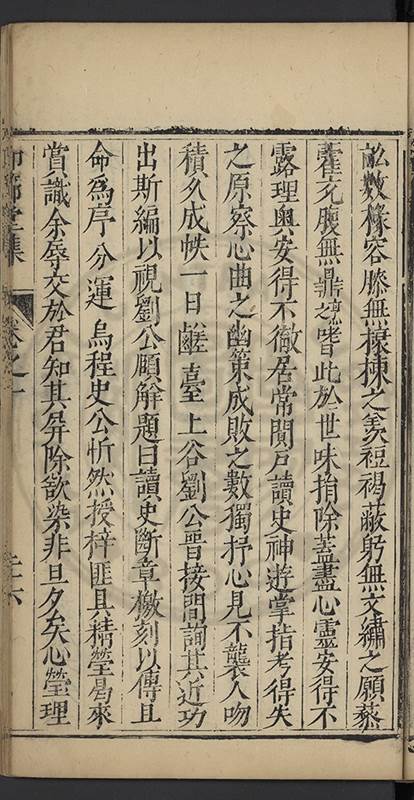 畝數椽容膝無榱棟之羨裋褐蔽躬無文繡之願藜
藿充腹無鼎之嗜此於世味捐除蓋盡心靈安得不
露理奧安得不徹居常閉戶讀史神遊掌指考得失
之原察心曲之幽策成敗之數獨抒心見不襲人吻
積久成帙一日鹺臺上谷劉公晉接間詢其近功
出斯編以視劉公願解題曰讀史斷章檄刻以傳且
命為序分運烏程史公忻然授梓匪具精瑩曷來
賞識余辱交於君知其屏除欲染非旦夕矣心瑩理
集
卷之一
二六